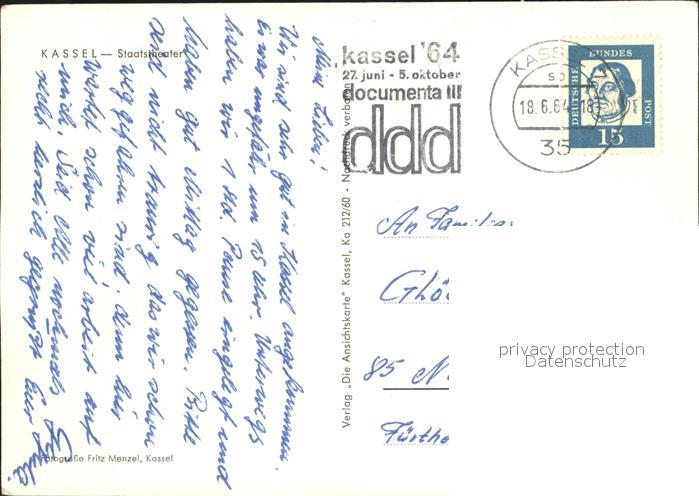 KASSEL — Staatstheater
Meine Lieben!
Wir sind sehr gut in Kassel angekommen.
Es war ungefähr um 15 Uhr. Unterwegs
haben wir 1 Std. Pause eingelegt und
haben gut Mittag gegessen. Bitte
seid nicht traurig das wir schon
weggefahren sind, denn hier
wartet schon viel Arbeit auf
mich. Seid Alle nochmals
recht herzlich gegrüßt Euer
Fotografie Fritz Menzel, Kassel
Verlag „Die Ansichtskarte" Kassel, Ka 212/60 - Nachdruck verboten
kassel '64
27. juni - 5. oktober
documenta III
ddd
KASSEL
18.6.64-18
35
DEUTSCHE BUNDES POST
15
An Familie
Glö
85 N
Fürthe
privacy protection
Datenschutz